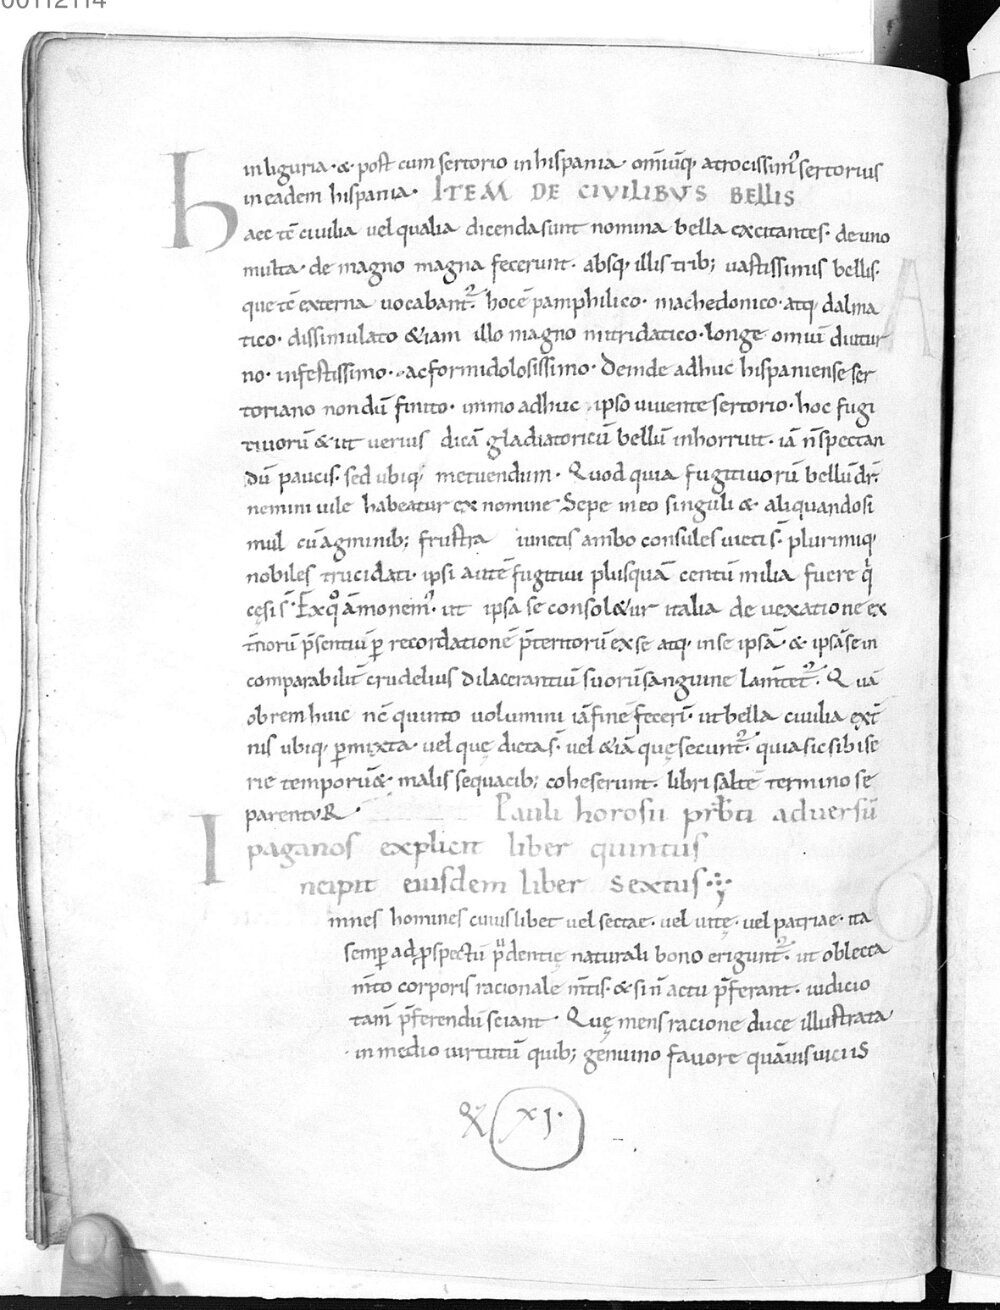 00112114
in liguria · & post cum sertorio in hispania · omniūq; atrocissim᾽ sertorius
in eadem hispania · ITEM DE CIVILIBVS BELLIS
Haec tē ciuilia uel qualia dicenda sunt nomina bella excitantes · de uno
multa · de magno magna fecerunt · absq; illis trib; uastissimis bellis ·
que tē externa uocabant᾽ · hoc ē pamphilico · machedonico · atq; dalma
tico · dissimulato &iam illo magno mitridatico · longe omiū diutur
no · infestissimo · ac formidolosissimo · Deinde adhuc hispaniense ser
toriano nondū finito · immo adhuc ipso uiuente sertorio · hoc fugi
tiuorū & ut uerius dicā gladiatoricū bellū inhorruit · iā ñ spectan
dū paucis · sed ubiq; metuendum · Quod quia fugitiuorū bellū dr̄ ·
nemini uile habeatur ex nomine Sepe in eo singuli & aliquando si
mul cū agminib; frustra iunctis ambo consules uicti s̄ · plurimiq;
nobiles trucidati · ipsi autē fugitiui plusquā centū milia fuere q̄
cęsi s̄ · Ex qͦ āmonem᾽ · ut ipsa se consol&ur italia de uexatione ex
t̄norū p̄sentiū ꝑ recordationē p̄teritorū ex se atq; in se ipsā & ipsā se in
comparabilit̄ crudelius dilacerantiū suorū sanguine lam̄tet᾽ · Quā
obrem huic nc̄ quinto uolumini iā finē fecerī · ut bella ciuilia ext̄
nis ubiq; ꝑmixta · uel quę dicta s̄ · uel &iā quę secunt᾽ · quia sic sibi se
rie temporū & malis sequacib; coheserunt · libri saltē termino se
parentuR ·
Pauli horosii prb̄ti aduersū
paganos explicit liber quintus
Incipit eiusdem liber sextus
mnes homines cuiuslibet uel sectae · uel uitę · uel patriae · ita
semꝑ ad ꝓspectū pͬdentię naturali bono erigunt᾽ · ut oblecta
m̄to corporis racionale m̄tis · & si ñ actu p̄ferant · iudicio
tam̄ p̄ferendū sciant · Quę mens racione duce illustrata
· in medio uirtutū quib; genuino fauore quāuis uiciis
XI ·